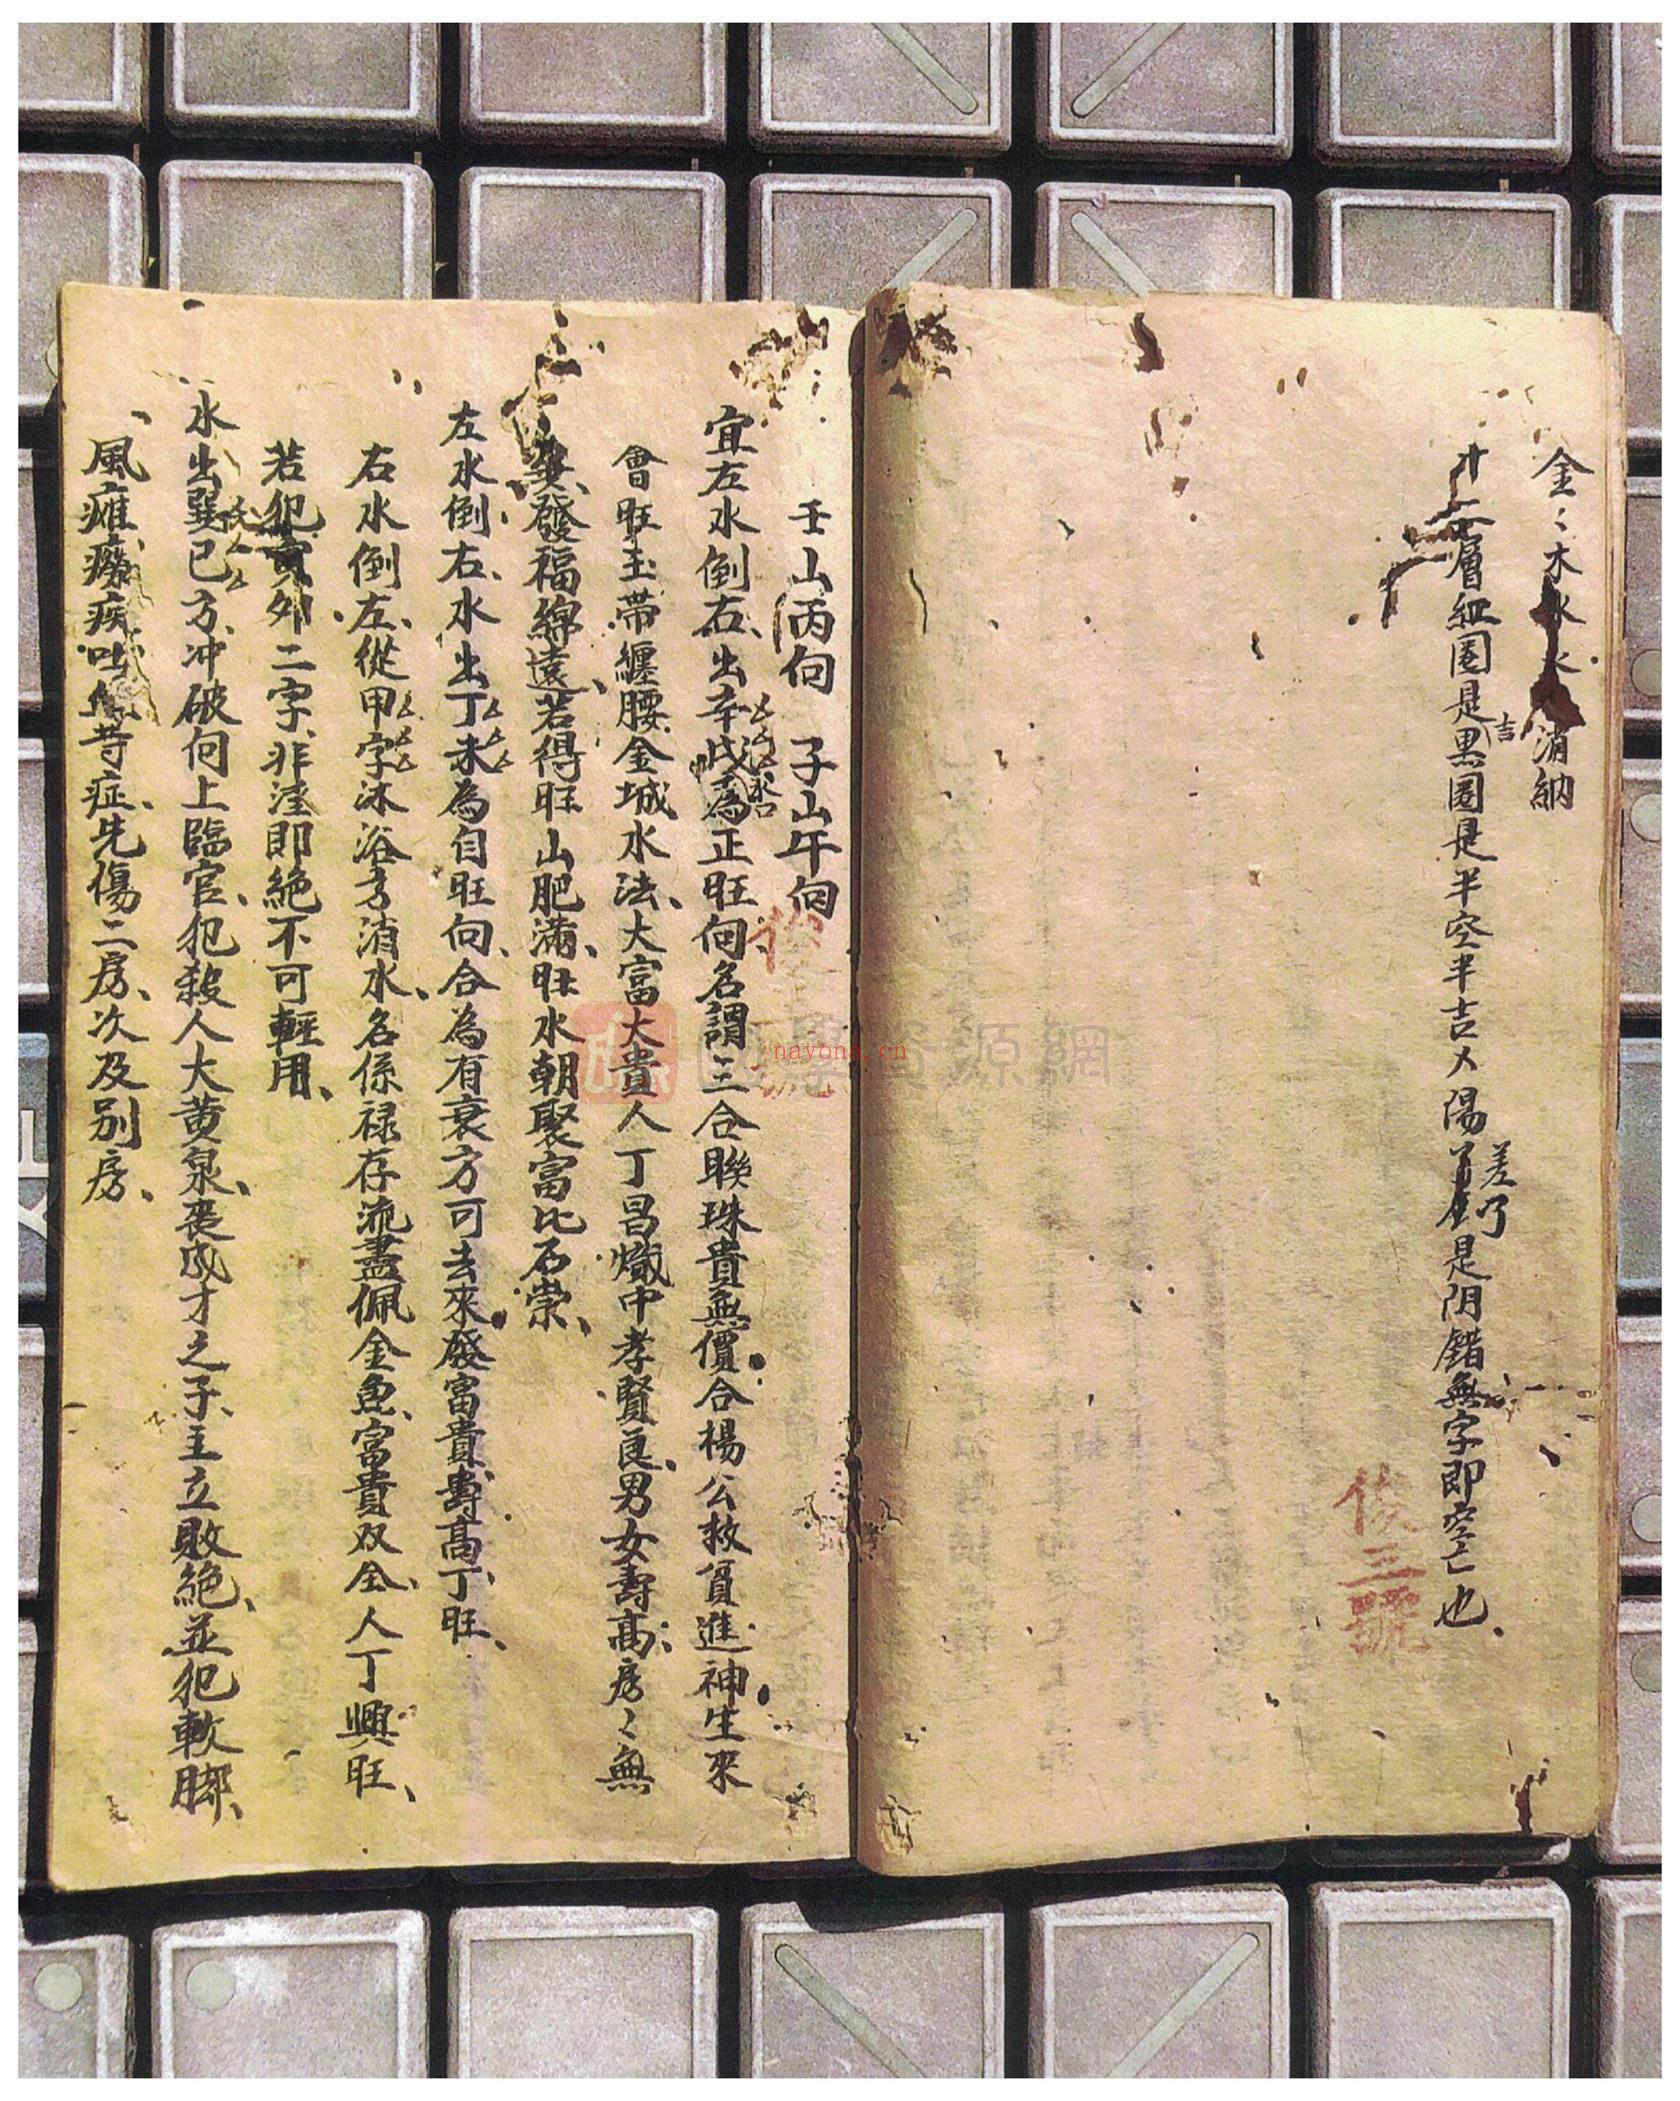 金〻木水水 消納
層紅圈是吉黑圈是半空半吉乂陽差是阴錯無字即空亡也
俊三號
壬山丙向 子山午向
宜左水倒右、出辛戌為正旺向、名謂三合聯珠貴無價合楊公救貧進神生來
水口
會旺玉帶纏腰金城水法、大富大貴人丁昌熾中孝賢良、男女壽高、房〻無
發福綿遠、若得旺山肥滿、旺水朝聚富比石崇、
左水倒右、水出丁未為自旺向、合為有衰方可去來發富貴壽高丁旺、
右水倒左、從甲字沐浴方消水、名係禄存流盡佩金魚、富貴双全、人丁興旺、
若犯寅卯二字、非淫即絕不可輕用、
水出巽巳方、冲破向上臨官、犯殺人大黄泉、喪成才之子、主立敗絕、並犯軟脚、
風癱、癆疾、吐等症、先傷二房、次及別房、
國學資源網
nayona.cn